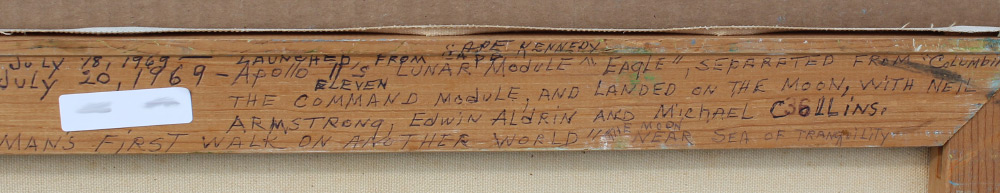 CAPE KENNEDY
July 18, 1969 — LAUNCHED, FROM CAPE
July 20, 1969 - Apollo 11's LUNAR MODULE "EAGLE", SEPARATED FROM "Columbia
ELEVEN
THE COMMAND MODULE, AND LANDED ON THE MOON, WITH NEIL
ARMSTRONG, EDWIN ALDRIN AND MICHAEL COLLINS.
MANS FIRST WALK ON ANOTHER WORLD" THE MOON NEAR SEA OF TRANQUILITY